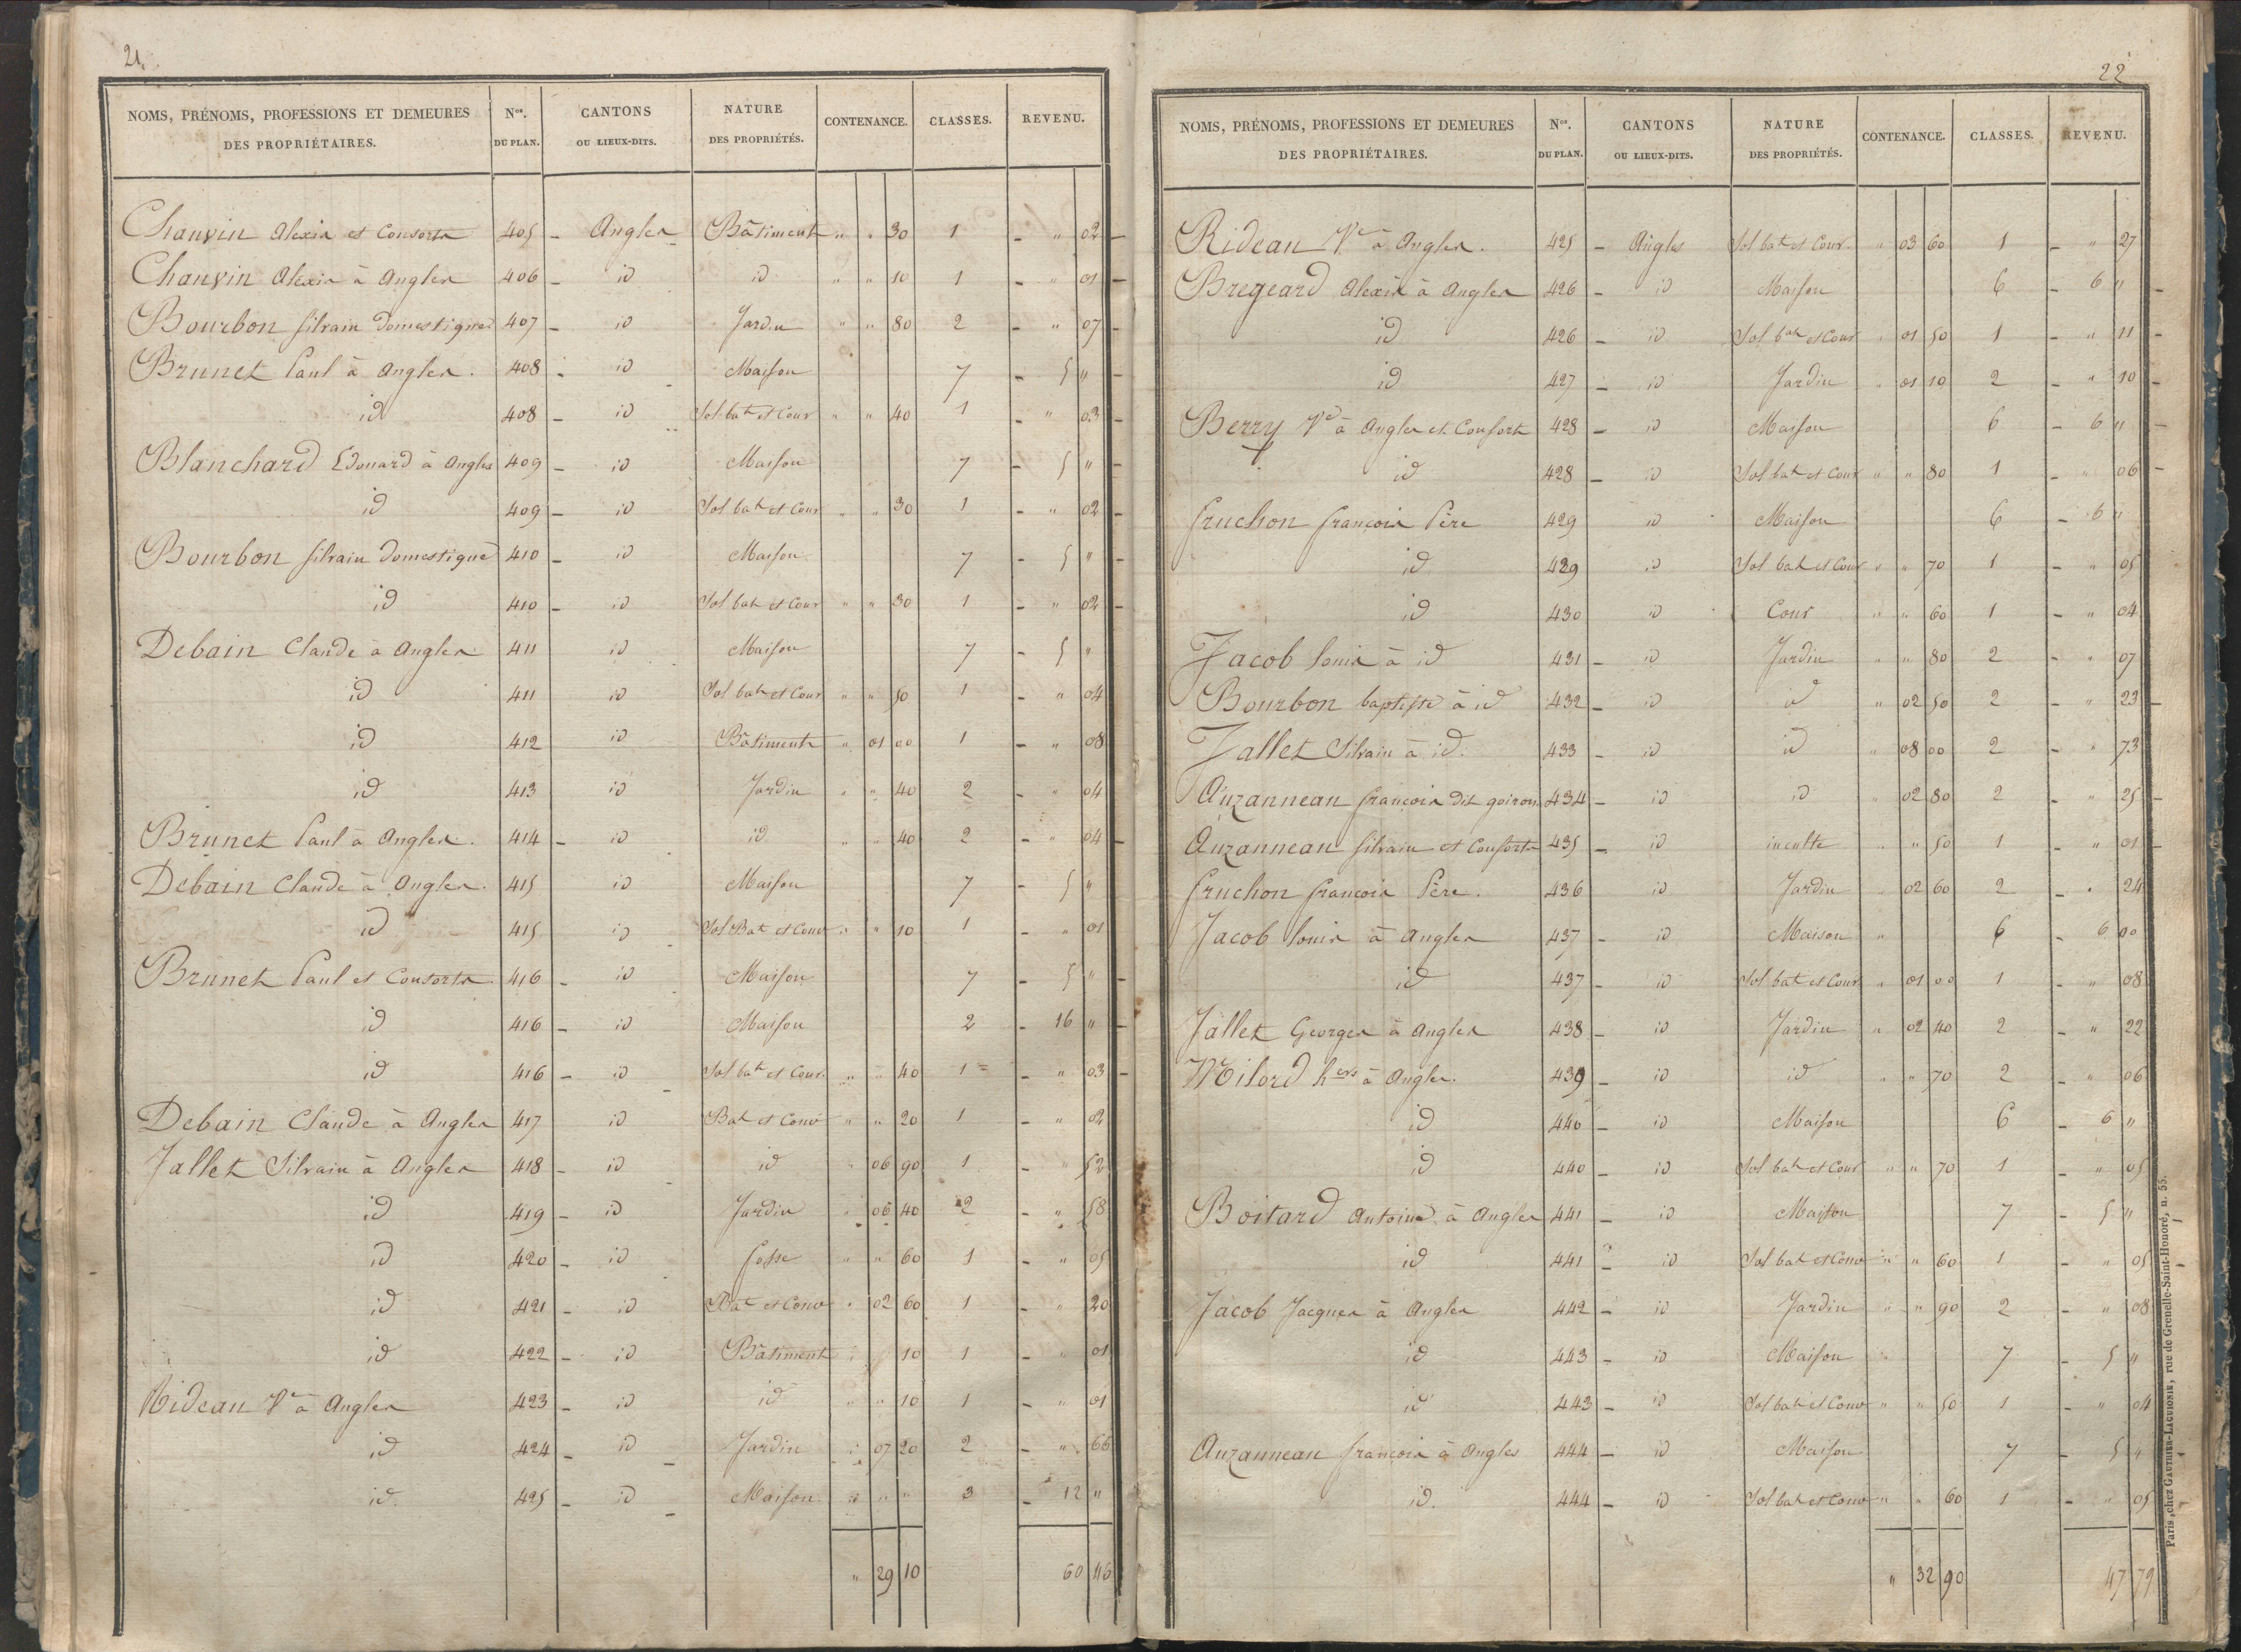 21.
NOMS, PRÉNOMS, PROFESSIONS ET DEMEURES DES PROPRIÉTAIRES. | Nos. DU PLAN. | CANTONS OU LIEUX-DITS. | NATURE DES PROPRIÉTÉS. | CONTENANCE. | CLASSES. | REVENU.
Chauvin Alexis et Consorts 405 - Angles Bâtiment " " 30 1 - " 02 -
Chauvin Alexis à Angles 406 - id id " " 10 1 - " 01 -
Bourbon Silvain domestique 407 - id Jardin " " 80 2 - " 07 -
Brunet Paul à Angles. 408 - id Maison 7 - 5 " -
id 408 - id Sol bat et Cour " " 40 1 - " 03 -
Blanchard Edouard à Angles 409 - id Maison 7 - 5 " -
id 409 - id Sol bat et Cour " " 30 1 - " 02 -
Bourbon Silvain domestique 410 - id Maison 7 - 5 " -
id 410 - id Sol bat et Cour " " 30 1 - " 02 -
Debain Claude à Angles 411 id Maison 7 - 5 "
id 411 id Sol bat et Cour " " 50 1 - " 04
id 412 id Bâtiments " 01 00 1 - " 08
id 413 id Jardin " " 40 2 - " 04
Brunet Paul à Angles. 414 - id id " " 40 2 - " 04 -
Debain Claude à Angles. 415 id Maison 7 - 5 "
id 415 id Sol Bat et Cour " " 10 1 - " 01
Brunet Paul et Consorts 416 - id Maison 7 - 5 " -
id 416 - id Maison 2 - 16 " -
id 416 - id Sol bat et Cour. " " 40 1 - " 03 -
Debain Claude à Angles 417 id Bat et Cour " " 20 1 - " 02
Jallet Silvain à Angles 418 - id id " 06 90 1 - " 52
id 419 - id Jardin " 06 40 2 - " 58
id 420 - id fosse " " 60 1 - " 05
id 421 - id Bat et Cour " 02 60 1 - " 20
id 422 - id Bâtiment " 10 1 - " 01
Rideau Ve à Angles 423 - id id " " 10 1 - " 01
id 424 - id Jardin " 07 20 2 - " 66
id. 425 - id Maison " " " 3 - 12 "
" 29 10 60 46
22
NOMS, PRÉNOMS, PROFESSIONS ET DEMEURES DES PROPRIÉTAIRES. | Nos. DU PLAN. | CANTONS OU LIEUX-DITS. | NATURE DES PROPRIÉTÉS. | CONTENANCE. | CLASSES. | REVENU.
Rideau Ve à Angles. 425 - Angles Sol bat et Cour. " 03 60 1 - " 27
Bregeard Alexis à Angles 426 - id Maison 6 - 6 " -
id 426 - id Sol bat et Cour " 01 50 1 - " 11 -
id 427 - id Jardin " 01 10 2 - " 10 -
Berry Ve à Angles et Consorts 428 - id Maison 6 - 6 " -
id 428 - id Sol bat et Cour " " 80 1 - " 06 -
fruchon françois Père 429 id Maison 6 - 6 "
id 429 id Sol bat et Cour " " 70 1 - " 05
id 430 id Cour " " 60 1 - " 04
Jacob louis à id 431 - id Jardin " " 80 2 - " 07
Bourbon baptiste à id 432 - id id " 02 50 2 - " 23 -
Jallet Silvain à id. 433 - id id " 08 00 2 - " 73
Auzanneau françois dit goiron 434 - id id " 02 80 2 - " 25 -
Auzanneau Silvain et Consorts 435 - id inculte " " 50 1 - " 01 -
fruchon françois Père. 436 id Jardin " 02 60 2 - " 24
Jacob louis à Angles 437 - id Maison " 6 - 6 00
id 437 - id Sol bat et Cour " 01 00 1 - " 08
Jallet Georges à Angles 438 - id Jardin " 02 40 2 - " 22
Milord hers à Angles. 439 - id id " " 70 2 - " 06
id 440 - id Maison 6 - 6 "
id 440 - id Sol bat et Cour " " 70 1 - " 05
Boitard Antoine à Angles 441 - id Maison 7 - 5 " -
id 441 - id Sol bat et Cour " " 60 1 - " 05 -
Jacob Jacques à Angles 442 - id Jardin " " 90 2 - " 08
id 443 - id Maison " 7 - 5 "
id 443 - id Sol bat et Cour " " 50 1 - " 04
Auzanneau françois à Angles 444 - id Maison 7 - 5 "
id. 444 - id Sol bat et Cour " " 60 1 - " 05
" 32 90 47 79
Paris, chez GAUTHIER-LAGUIONIE, rue de Grenelle-Saint-Honoré, n. 55.